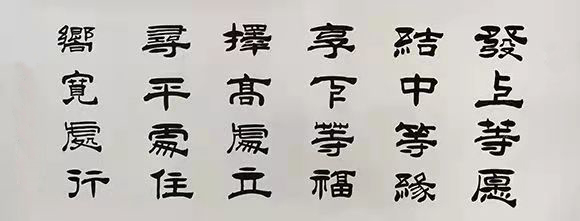 發上等愿
結中等緣
享下等福
擇高處立
尋平處住
嚮寬處行